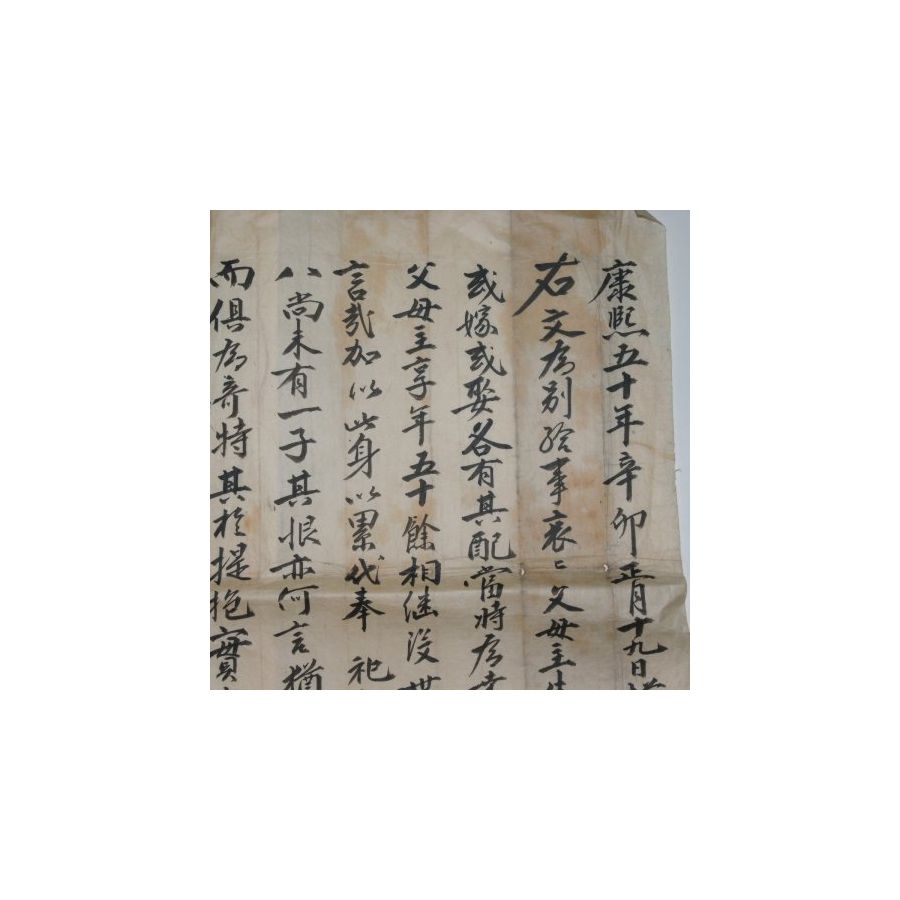 康熙五十年辛卯正月十九日
右文為別給事哀〻父母主生
或嫁或娶各有其配當時為幸
父母主享年五十餘相継沒世
言哉加以此身以累代奉祀
八尚未有一子其恨亦何言猶
而俱為奇特其於提抱實